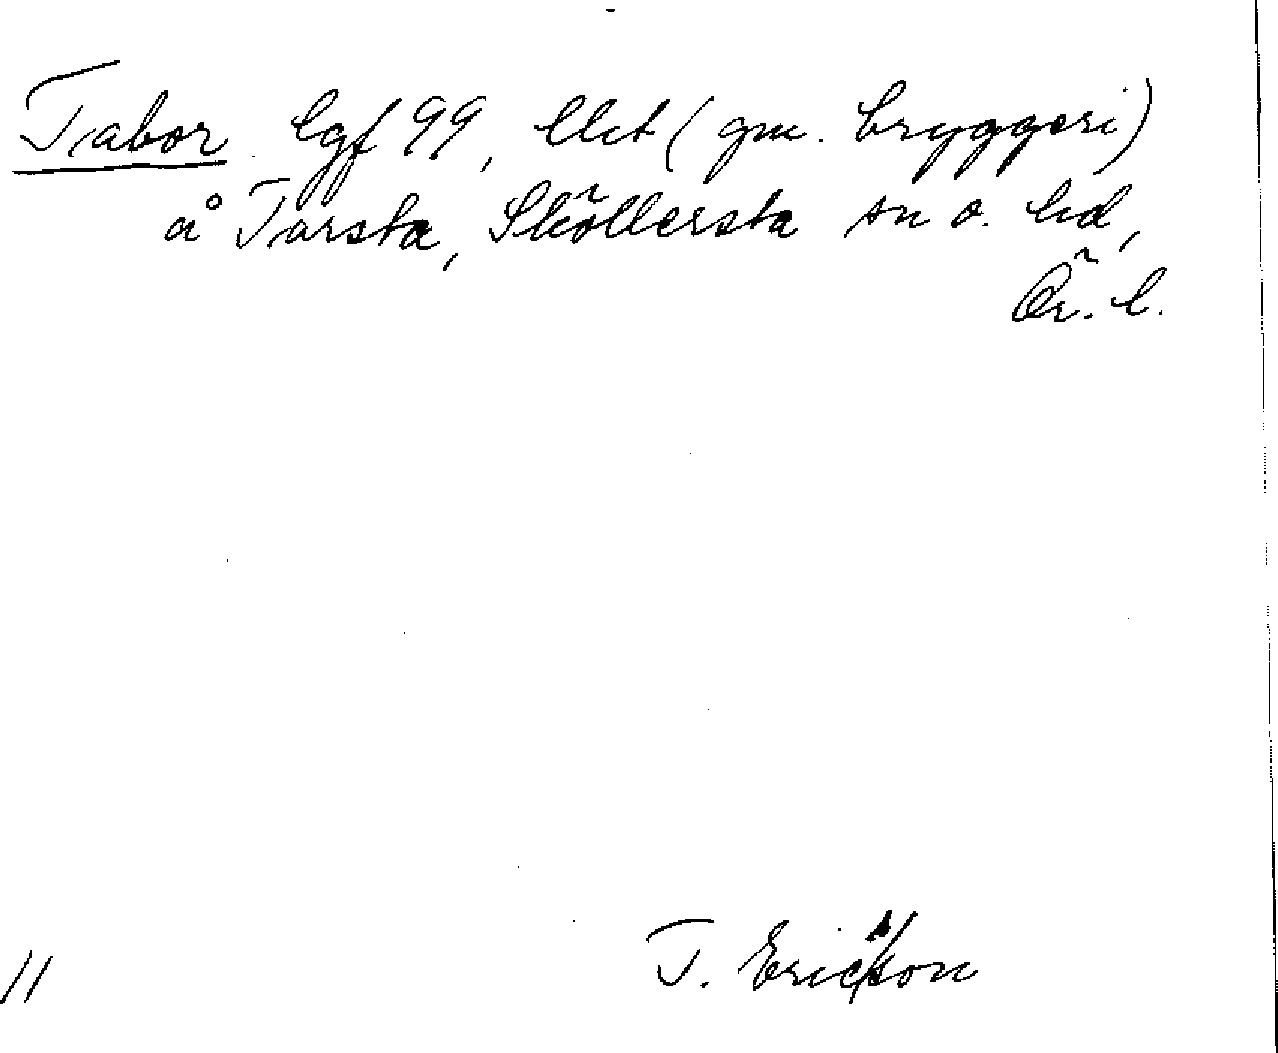 Tabor lgf 99, lht (gm. bryggeri)
å Tarsta, Sköllersta sn o. hd,
Ör. l.
T. Ericsson